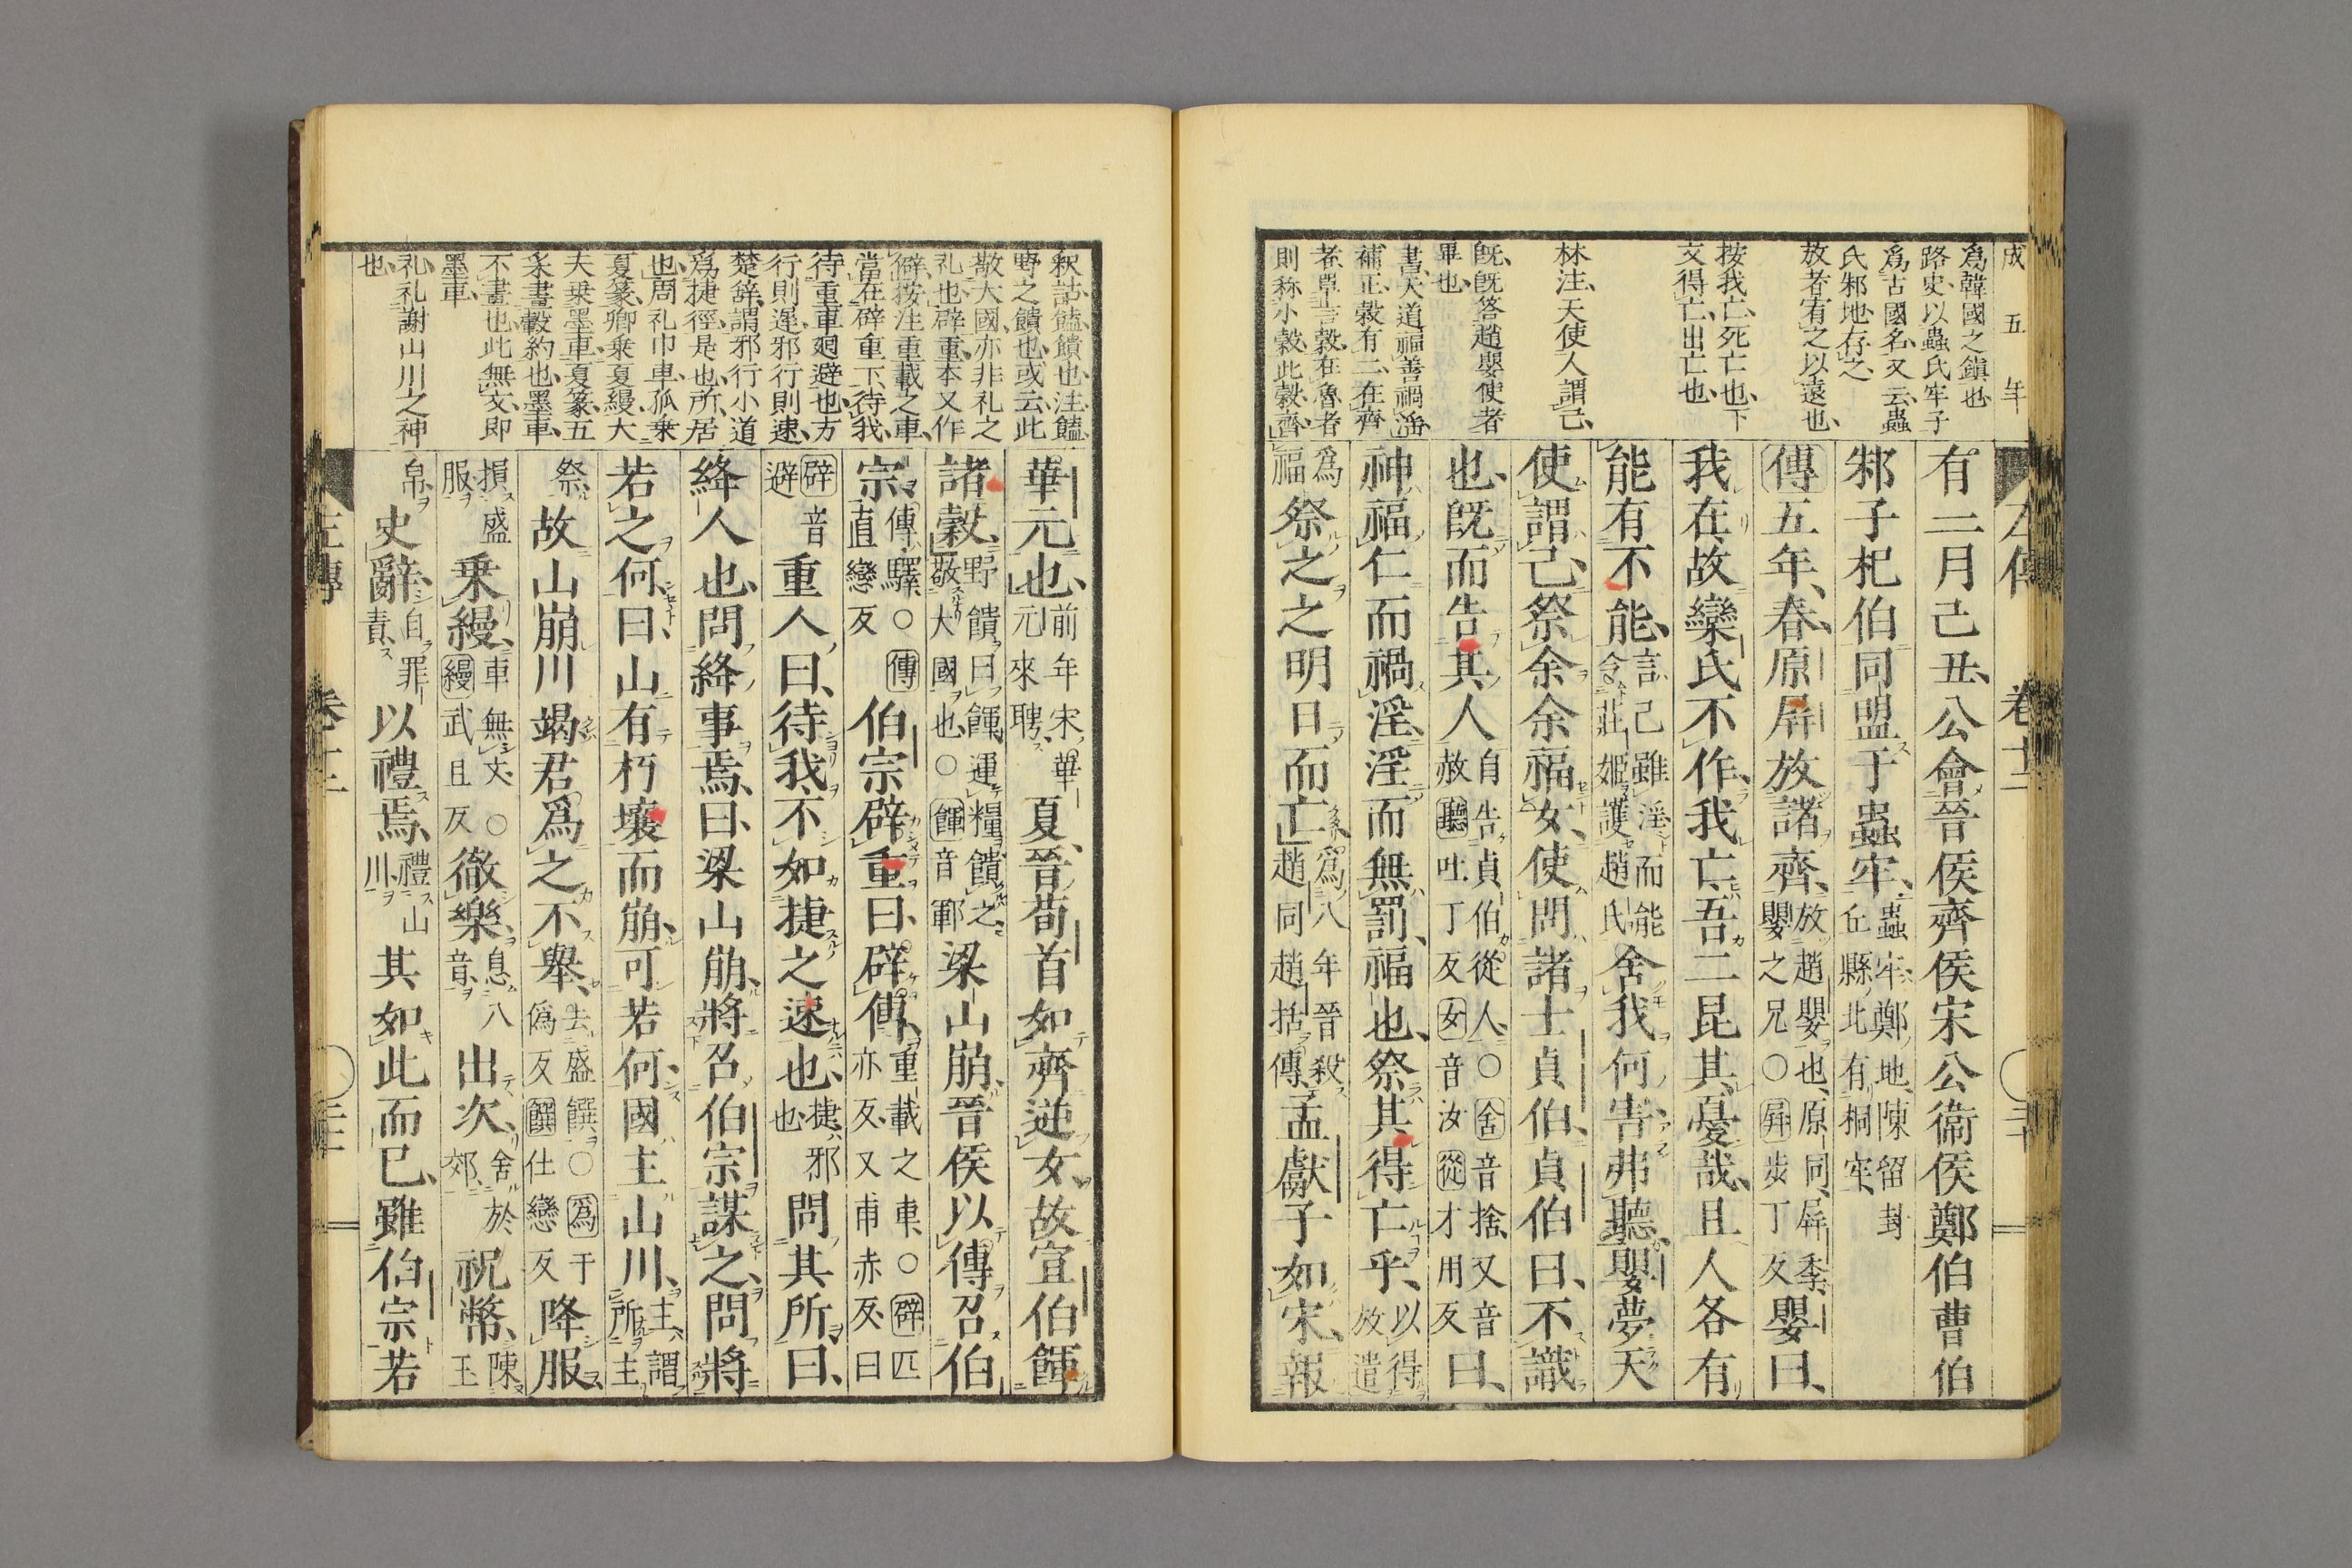 成五年
爲韓國之鎭也
路史以蟲氏牢子
爲古國名又云蟲
氏邾地存之
放者宥之以遠也
按我亡死亡也下
文得亡出亡也
林注天使人謂己
既既答趙嬰使者
畢也
書天道福善禍淫
補正穀有二在齊
者單言穀在魯者
則称小穀此穀齊
有二月己丑公會晉侯齊侯宋公衞侯鄭伯曹伯
邾子杞伯同盟于蟲牢蟲牢鄭地陳留封丘縣北有桐牢
傳五年春原屛放諸齊放趙嬰也原同屛季嬰之兄○屛步丁反嬰曰
我在故欒氏不作我亡吾二昆其憂哉且人各有
能有不能言己雖淫而能令莊姬護趙氏舍我何害弗聽嬰夢天
使謂己祭余余福女使問諸士貞伯貞伯曰不識
也既而告其人自告貞伯從人○舍音捨又音赦聽吐丁反女音汝從才用反曰
神福仁而禍淫淫而無罰福也祭其得亡乎以得放遣爲福
祭之之明日而亡爲八年晉殺趙同趙括傳孟獻子如宋報
華元也前年宋華元來聘夏晉荀首如齊逆女故宣伯餫
諸穀野饋曰餫運糧饋之敬大國也○餫音鄆梁山崩晉侯以傳召伯
宗傳驛○傳直戀反伯宗辟重曰辟傳重載之車○辟匹亦反又甫赤反曰
辟音避重人曰待我不如捷之速也捷邪也問其所曰
絳人也問絳事焉曰梁山崩將召伯宗謀之問將
若之何曰山有朽壤而崩可若何國主山川主謂所主
祭故山崩川竭君爲之不舉去盛饌○爲于僞反饌仕戀反降服
損盛服乗縵車無文○縵武旦反徹樂息八音出次舍於郊祝幣陳玉
帛史辭自罪責以禮焉禮山川其如此而已雖伯宗若
釈詁饁饋也注饁
野之饋也或云此
敬大國亦非礼之
礼也辟重本又作
僻按注重載之車
當在辟重下待我
待重車廻避也方
行則遅邪行則速
楚辞謂邪行小道
爲捷徑是也所居
也周礼巾車孤乗
夏篆卿乗夏縵大
夫乗墨車夏篆五
采畫轂約也墨車
不畫也此無文即
墨車
礼礼謝山川之神
也